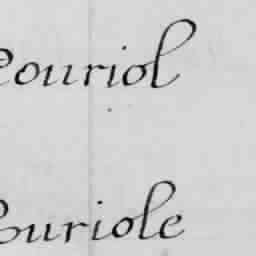 ouriol
ouriole